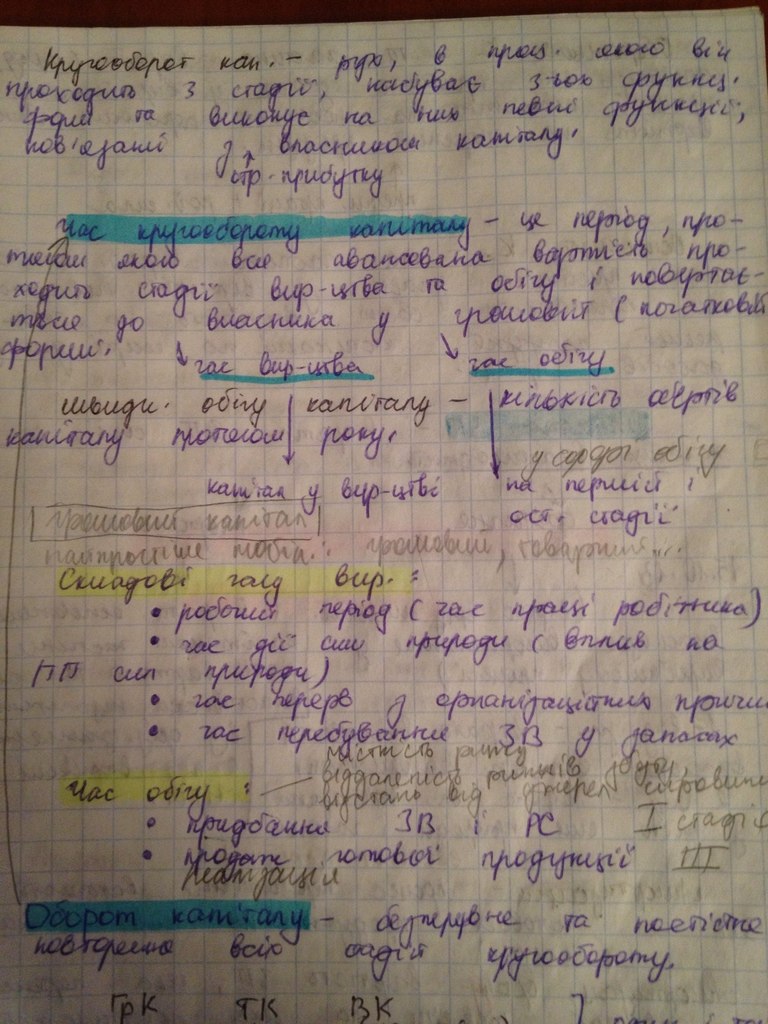 Кругооборот кап. – рух, в проц. якого він
проходить 3 стадії, набуває 3-ох функц.
форм та виконує на них певні функції,
пов'язані з власником капіталу.
отр. прибутку
Час кругообороту капіталу – це період, про-
тягом якого вся авансована вартість про-
ходить стадії вир-цтва та обігу і повертає-
ться до власника у грошовій (початковій
формі.
час вир-цтва час обігу
швидк. обігу капіталу – кількість обертів
капіталу протягом року.
у сфері обігу
капітал у вир-цтві на першій і
ост. стадії
Грошовий капітал
найпростіше грошовий, товарний...
Складові часу вир.:
• робочий період (час праці робітника)
• час дії сил природи (вплив на
ПП сил природи)
• час перерв з організаційних причин
• час перебування ЗВ у запасах
місткість ринку
віддаленість ринків збуту,
Час обігу: відстань від джерел сировини
• придбання ЗВ і РС I стадія
• продаж готової продукції III
реалізація
Оборот капіталу – безперервне та постійне
повторення всіх стадій кругообороту.
ГрК ТК ВК